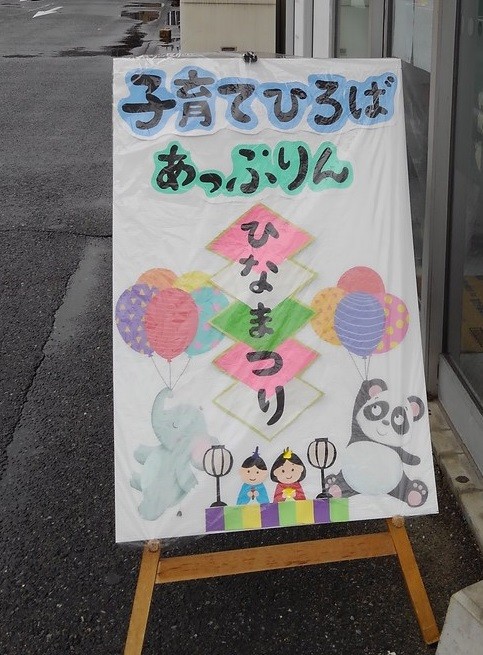 子育てひろば
あっぷりん
ひなまつり